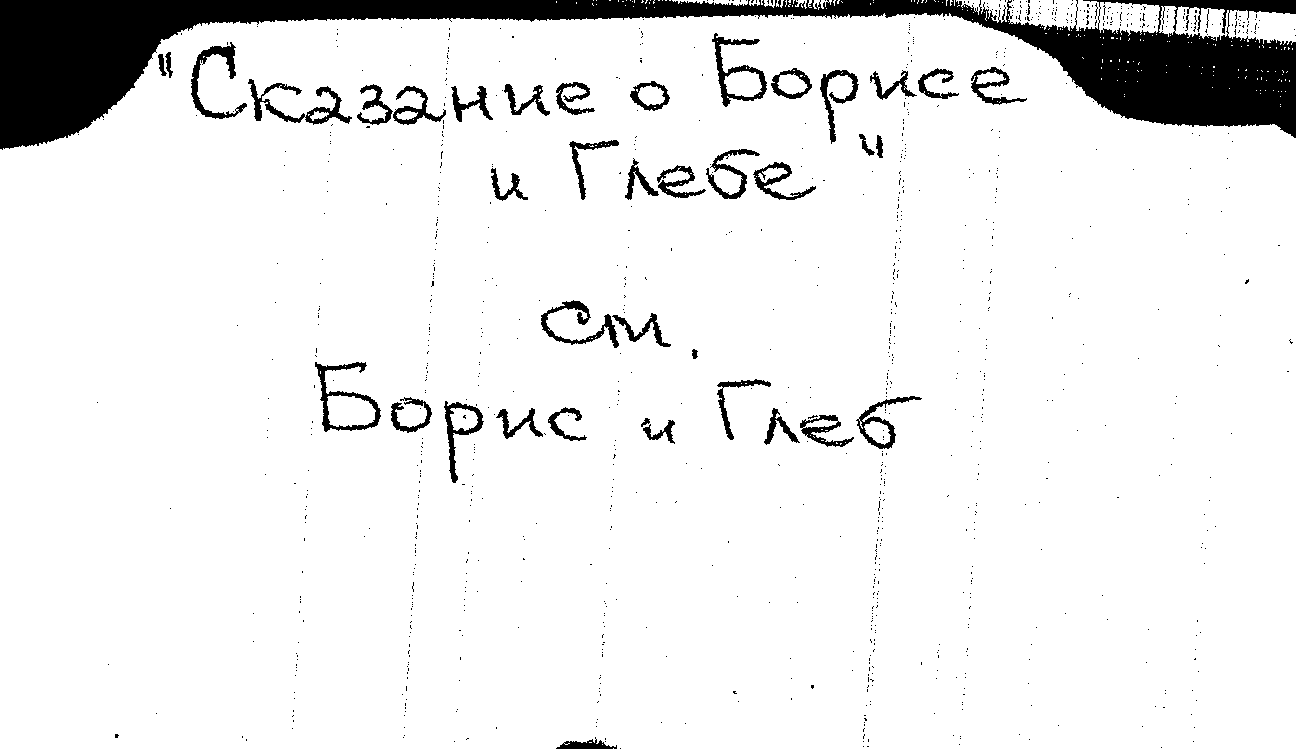 "Сказание о Борисе
и Глебе"
см.
Борис и Глеб